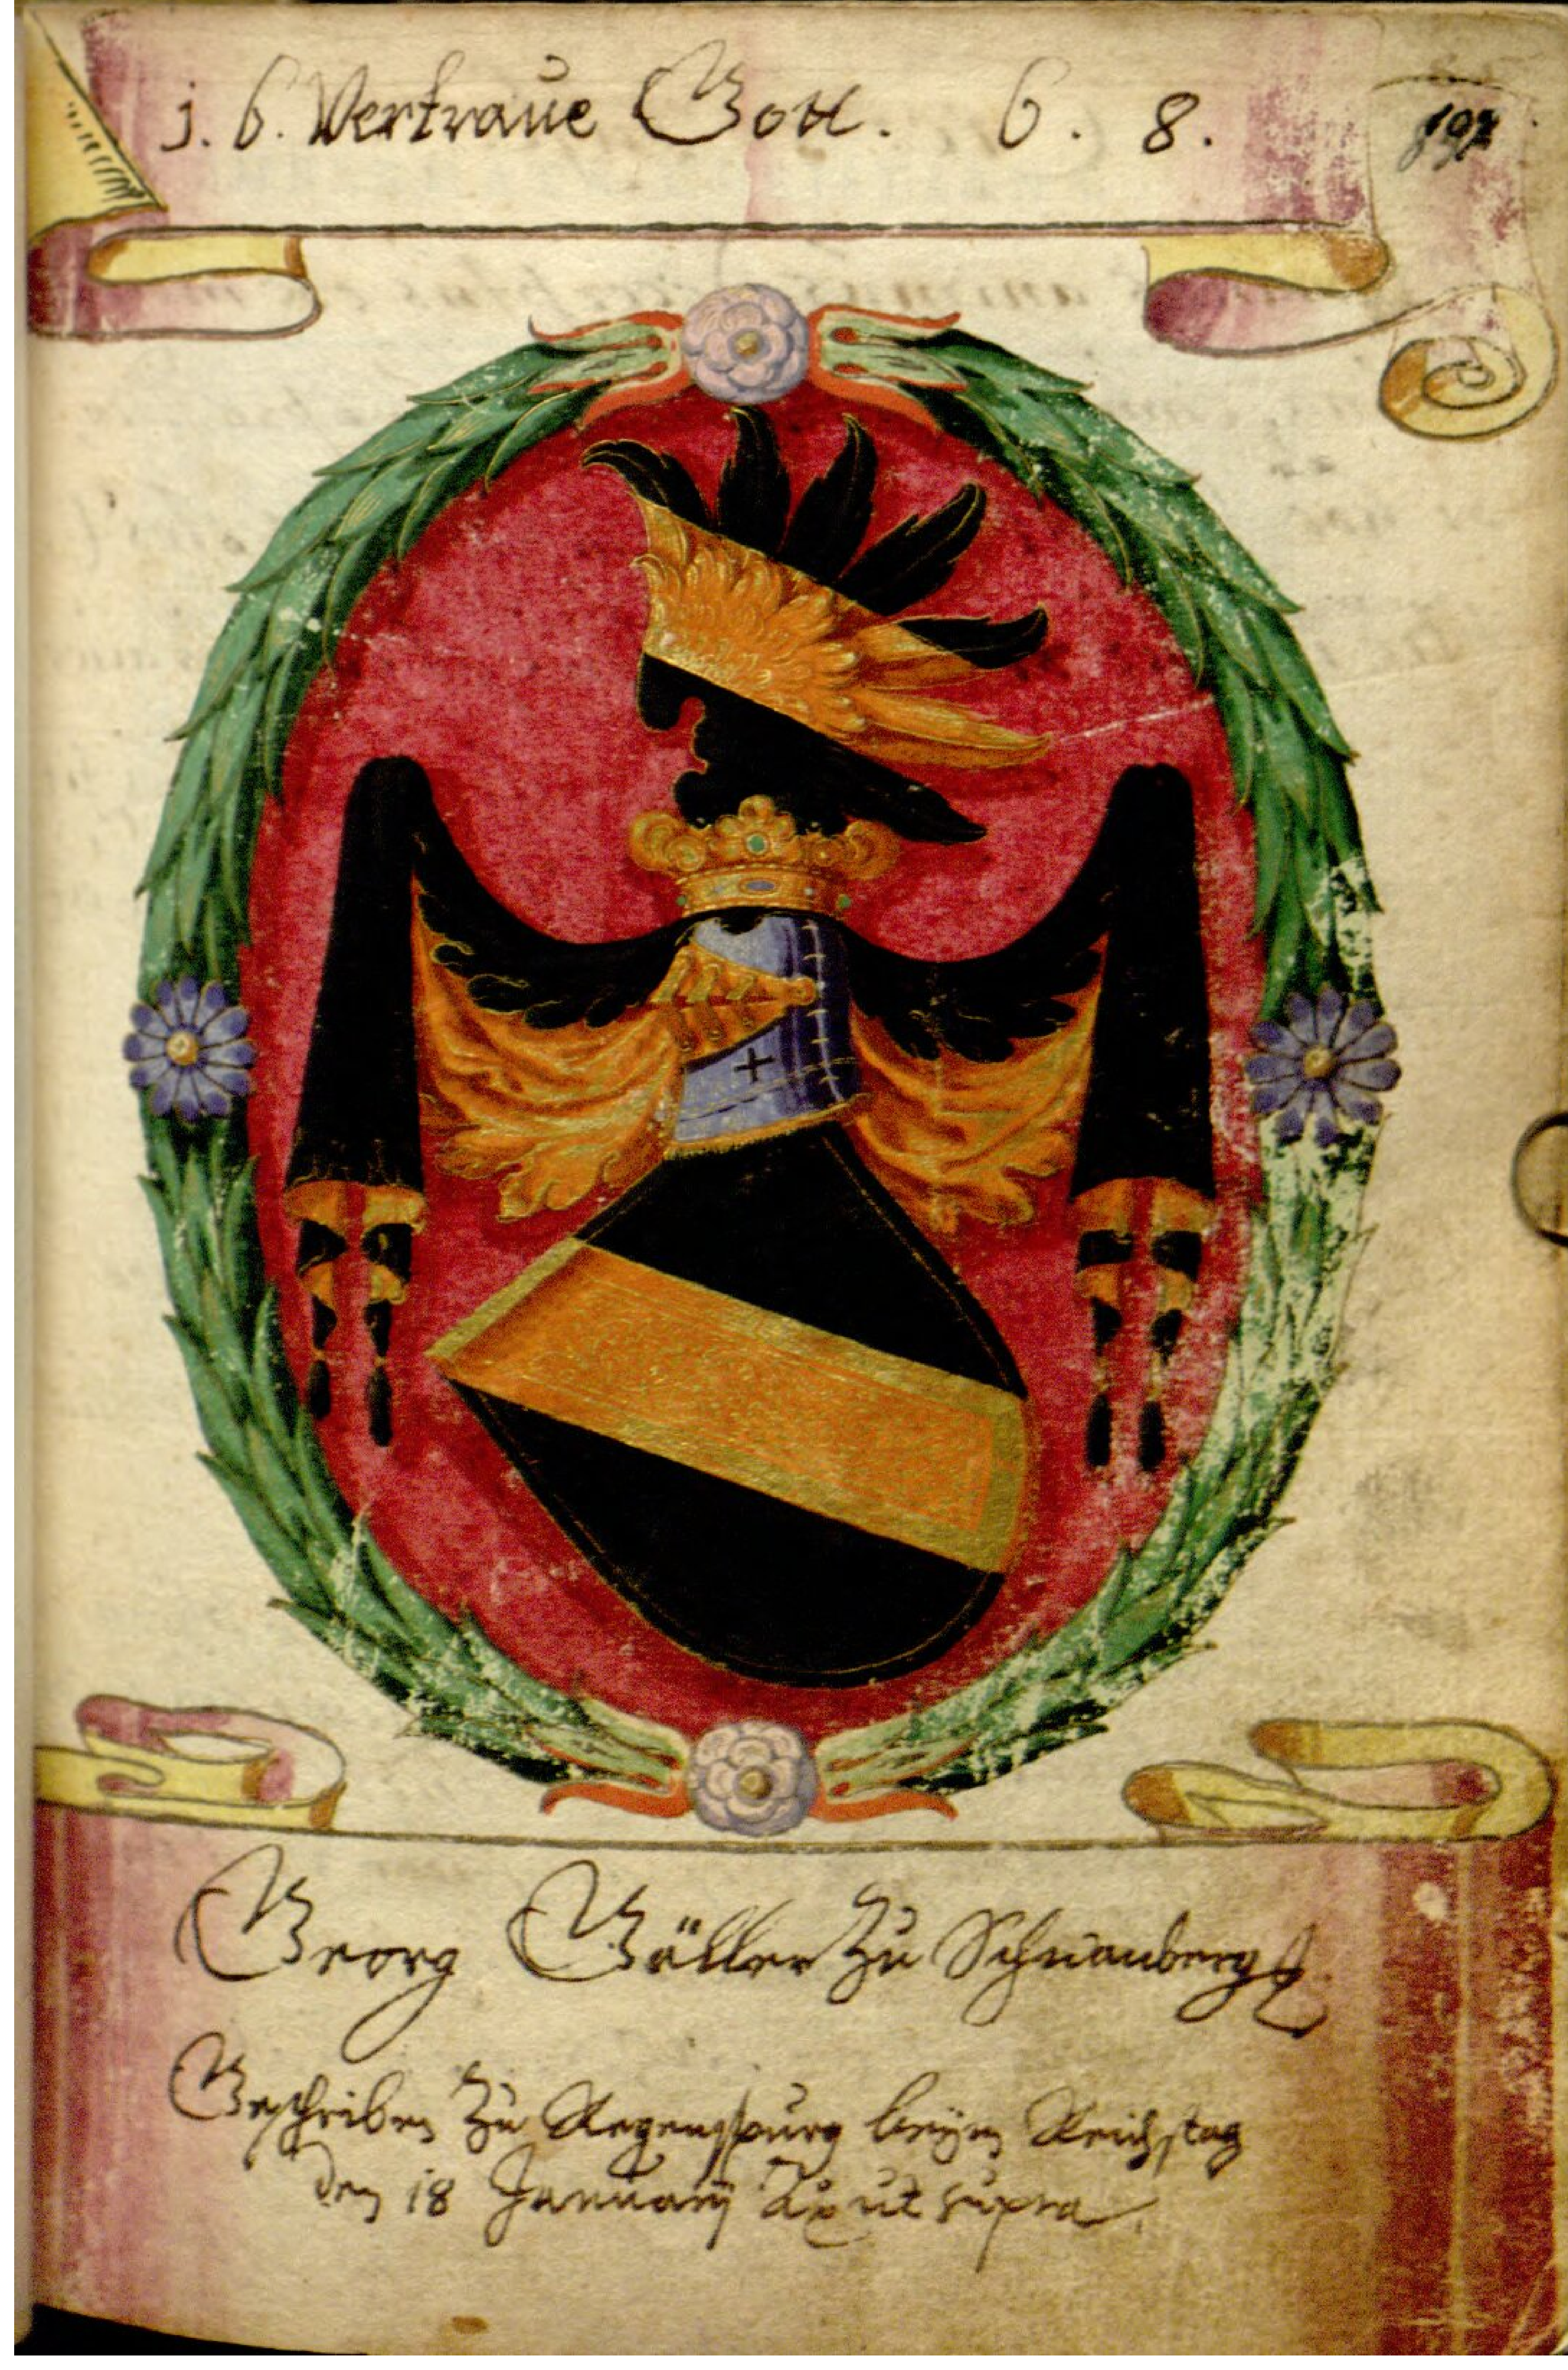 j. 6. Vertraue Gott. 6. 8.
197
Georg Gäller zu Schwanberg
Geschriben zu Regenspurg beÿm Reichstag
den 18 Januarÿ Ao ut supra